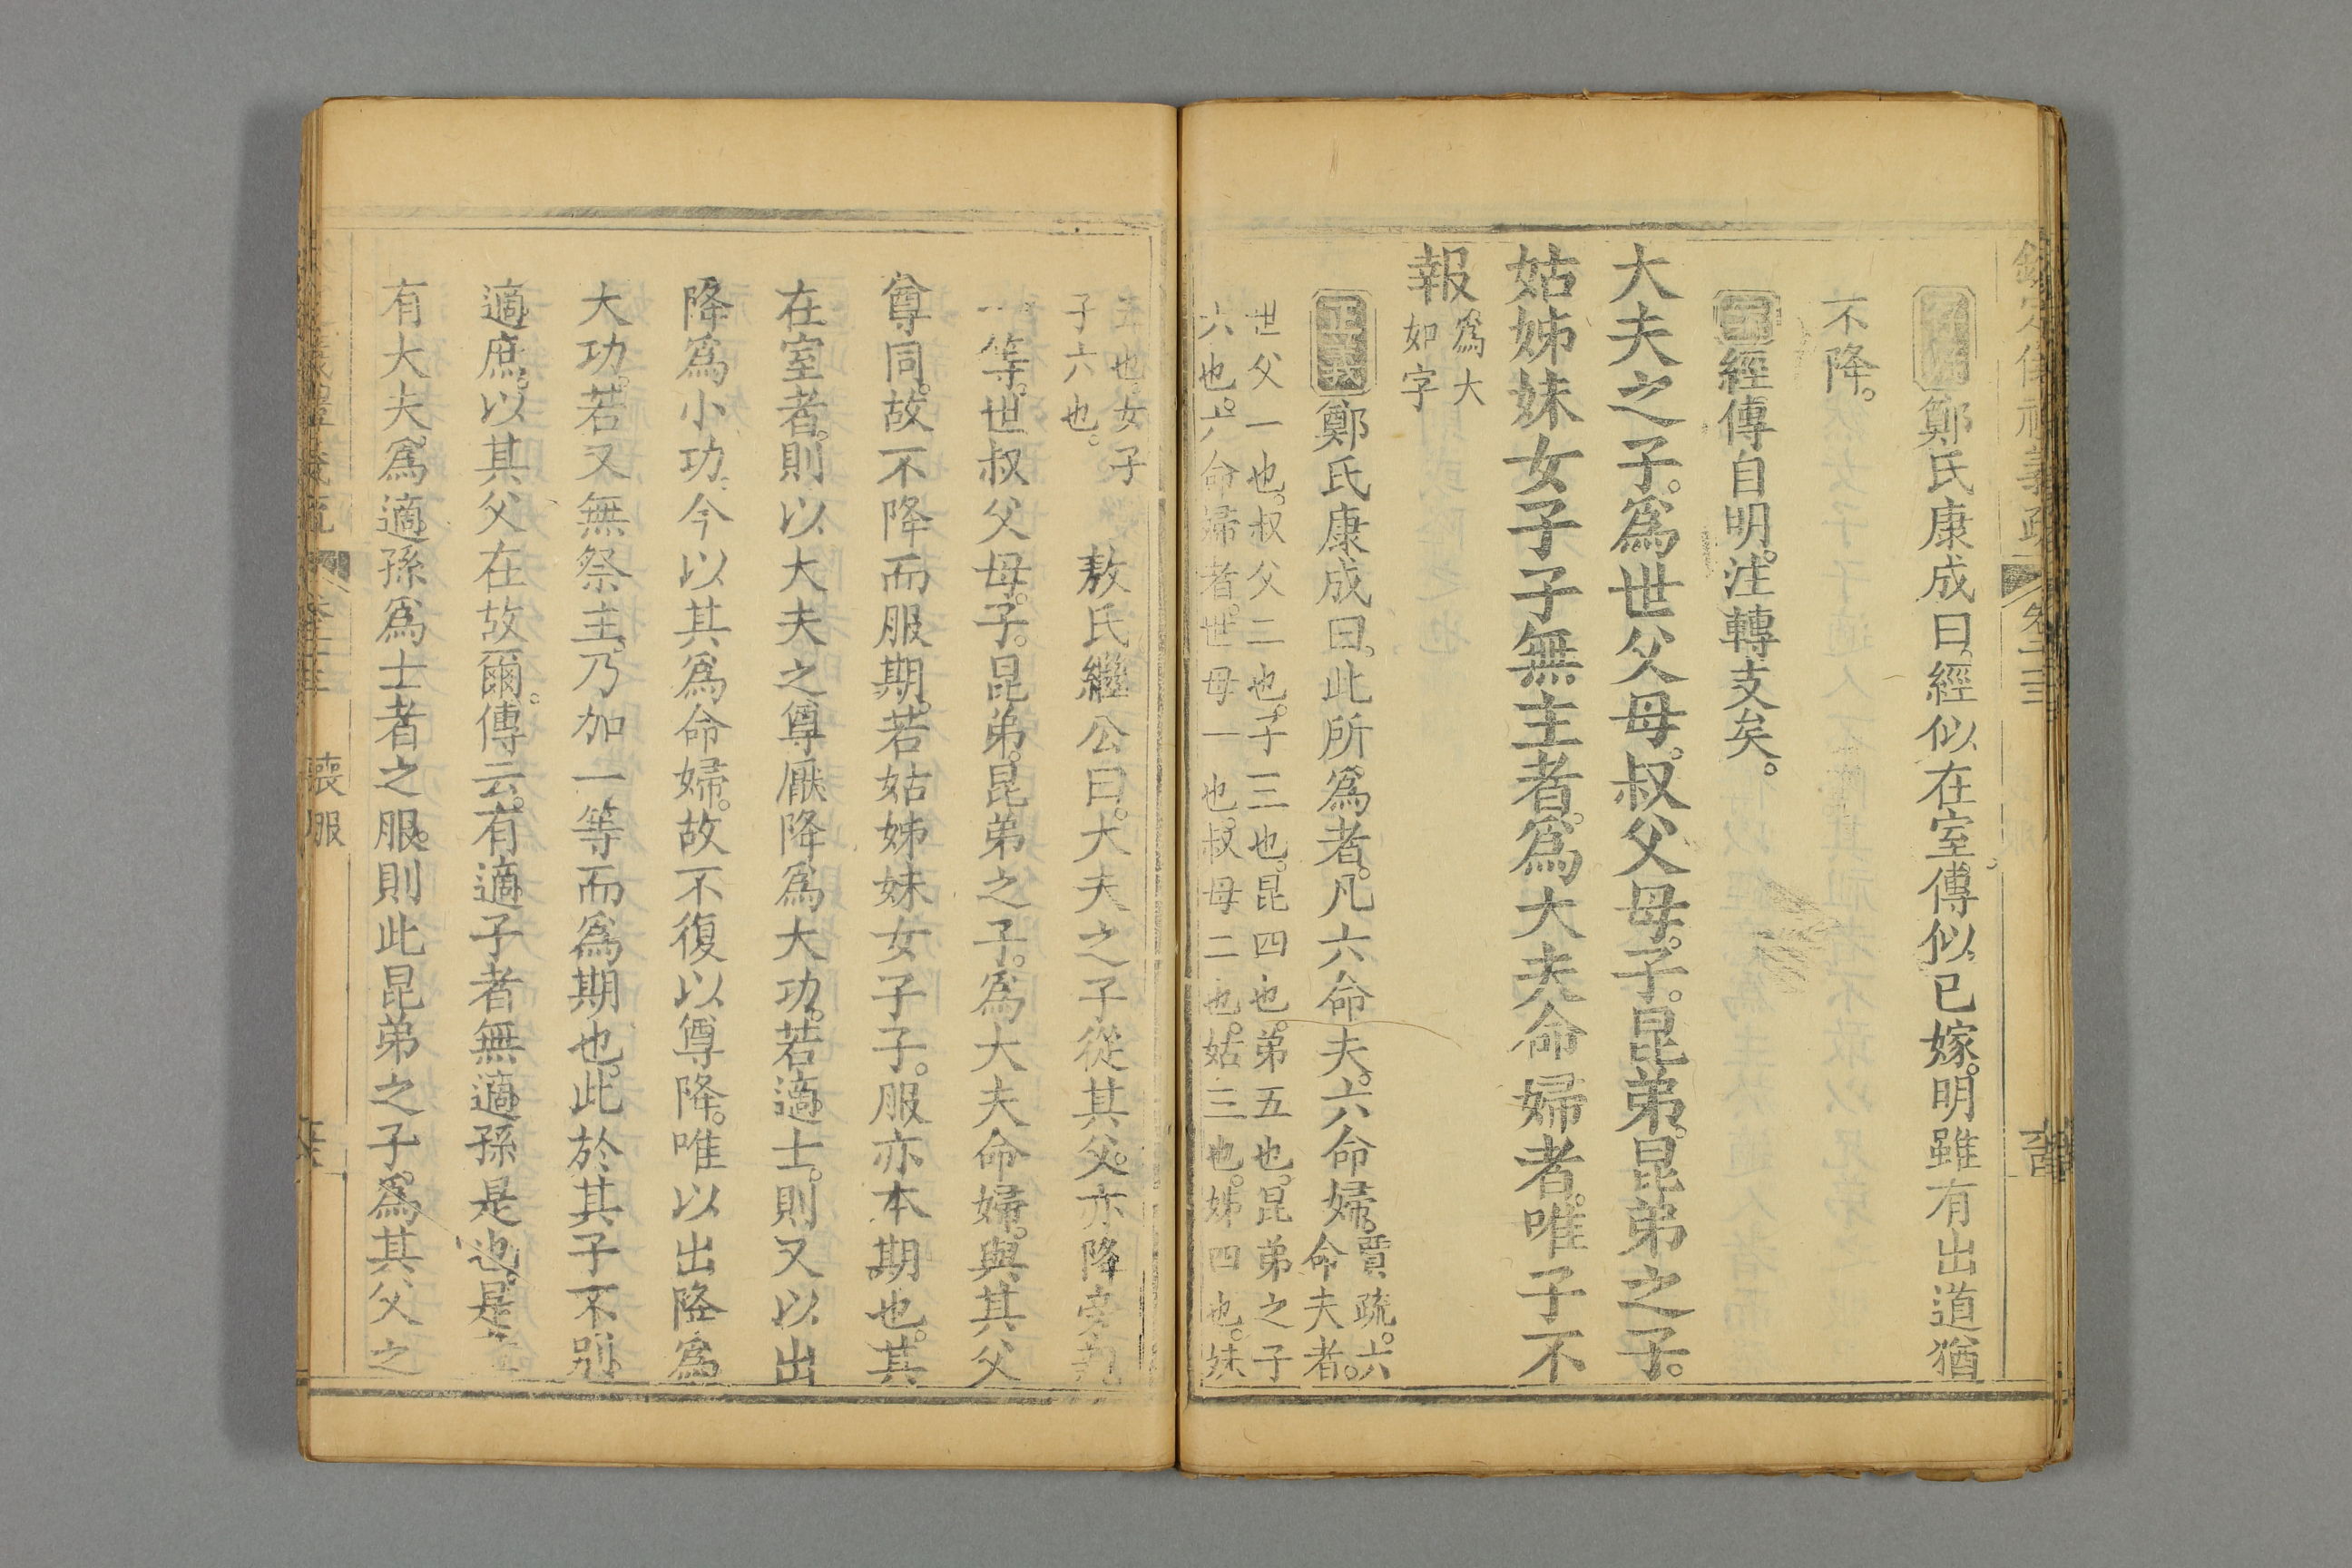 鄭氏康成曰。經似在室。傳似已嫁。明雖有出道猶
不降。
經傳自明。注轉支矣。
大夫之子。爲世父母。叔父母。子。昆弟。昆弟之子。
姑姊妹女子子無主者。爲大夫命婦者。唯子不
報爲大
如字
正義鄭氏康成曰。此所爲者。凡六命夫。六命婦。賈疏。六
命夫者。
世父一也。叔父二也。子三也。昆四也。弟五也。昆弟之子
六也。六命婦者。世母一也。叔母二也。姑三也。姊四也。妹
五也。女子
子六也。
敖氏繼公曰。大夫之子從其父。亦降旁親
一等。世叔父母。子。昆弟。昆弟之子。爲大夫命婦。與其父
尊同。故不降而服期。若姑姊妹女子子。服亦本期也。其
在室者。則以大夫之尊厭降爲大功。若適士。則又以出
降爲小功。今以其爲命婦。故不復以尊降。唯以出降爲
大功。若又無祭主。乃加一等而爲期也。此於其子不別
適庶。以其父在故爾。傳云。有適子者無適孫是也。是
有大夫爲適孫爲士者之服。則此昆弟之子。爲其父之
喪服